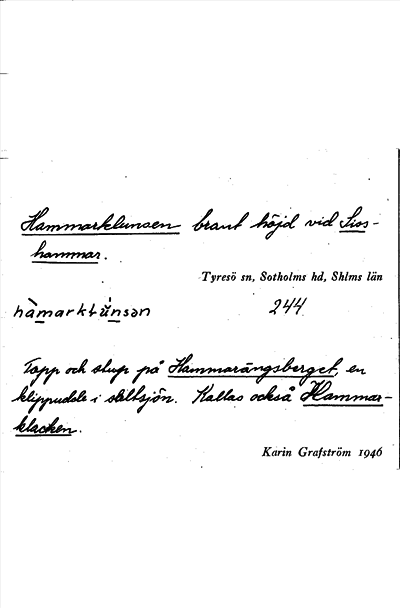 Hammarklunsen brant höjd vid Liss-
hammar.
Tyresö sn, Sotholms hd, Shlms län
hàmarklúnsən 244
Topp och stup på Hammarängsberget, en
klippudde i sjön. Kallas också Hammar-
klacken.
Karin Grafström 1946